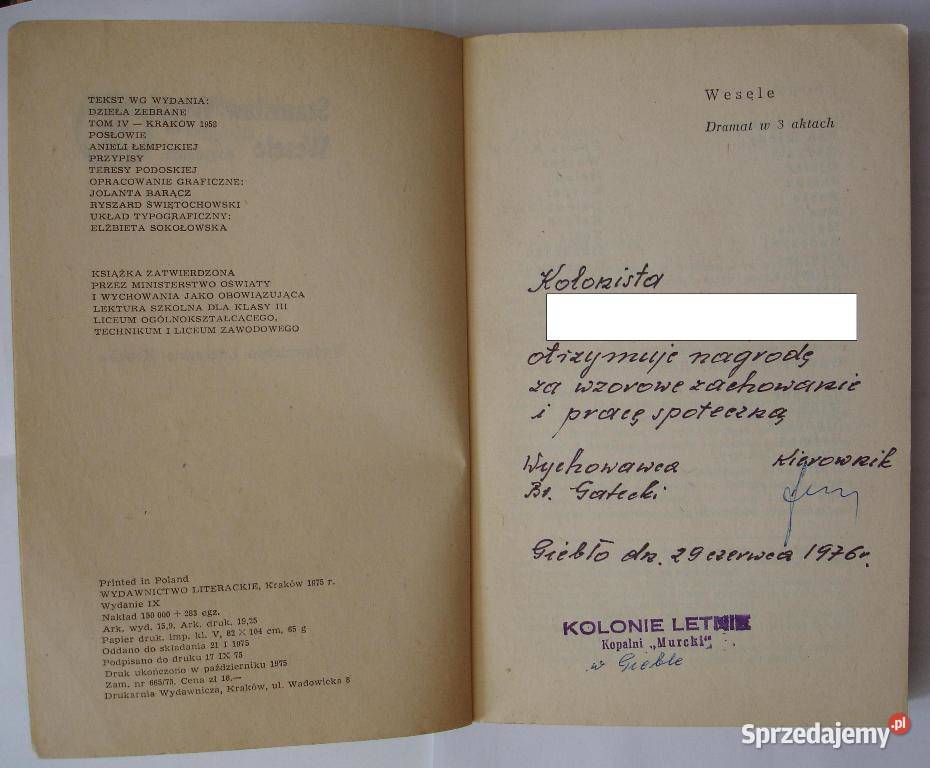 TEKST WG WYDANIA:
DZIEŁA ZEBRANE
TOM IV — KRAKÓW 1958
POSŁOWIE
ANIELI ŁEMPICKIEJ
PRZYPISY
TERESY PODOSKIEJ
OPRACOWANIE GRAFICZNE:
JOLANTA BARĄCZ
RYSZARD ŚWIĘTOCHOWSKI
UKŁAD TYPOGRAFICZNY:
ELŻBIETA SOKOŁOWSKA
KSIĄŻKA ZATWIERDZONA
PRZEZ MINISTERSTWO OŚWIATY
I WYCHOWANIA JAKO OBOWIĄZUJĄCA
LEKTURA SZKOLNA DLA KLASY III
LICEUM OGÓLNOKSZTAŁCĄCEGO,
TECHNIKUM I LICEUM ZAWODOWEGO
Printed in Poland
WYDAWNICTWO LITERACKIE, Kraków 1975 r.
Wydanie IX
Nakład 150 000 + 283 egz.
Ark. wyd. 15,9. Ark. druk. 19,25
Papier druk. imp. kl. V, 82 × 104 cm, 65 g
Oddano do składania 21 I 1975
Podpisano do druku 17 IX 75
Druk ukończono w październiku 1975
Zam. nr 665/75. Cena zł 16.—
Drukarnia Wydawnicza, Kraków, ul. Wadowicka 8
Wesele
Dramat w 3 aktach
Kolonista
otrzymuje nagrodę
za wzorowe zachowanie
i pracę społeczną
Wychowawca Kierownik
Br. Gałecki
Giebło dn. 29 czerwca 1976 r.
KOLONIE LETNIE
Kopalni „Murcki"
w Gieble
Sprzedajemy.pl